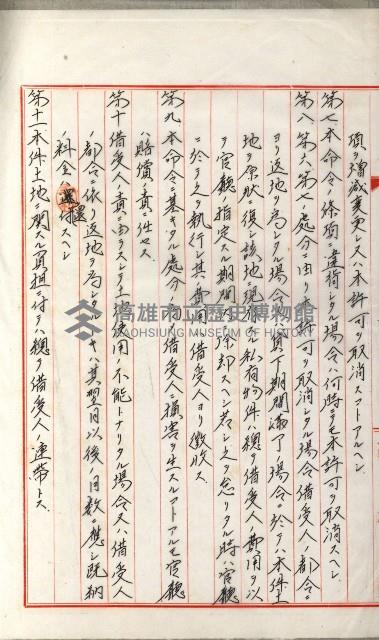 項ヲ増減変更シ又ハ本許可ヲ取消スコトアルヘシ
第七 本命令ノ條項ニ違背シタル場合ハ何時ニテモ本許可ヲ取消スヘシ
第八 第六第七ノ処分ニ由リ許可ヲ取消シタル場合借受人ノ都合ニ
ヨリ返地ヲ為シタル場合貸下期間満了ノ場合ニ於テハ本件土
地ヲ原状ニ復シ該地ニ現存スル私有物件ハ總テ借受人ノ費用ヲ以
テ官廳ノ指定スル期間内ニ除却スヘシ若シ之ヲ怠リタル時ハ官廳
ニ於テ之ヲ執行シ其ノ費用ハ借受人ヨリ徴收ス
第九 本命令ニ基キタル処分ノ為借受人ニ損害ヲ生スルコトアルモ官廳
ハ賠償ノ責ニ任セス
第十 借受人ノ責ニ由ラスシテ土地使用ノ不能トナリタル場合又ハ借受人
ノ都合ニ依リ返地ヲ為シタルトキハ其翌月以後ノ月数ニ應シ既納
ノ料金ヲ還付スヘシ
還
第十一 本件土地ニ関スル負担ニ付テハ總テ借受人ノ連帯トス
高雄市立歷史博物館
KAOHSIUNG MUSEUM OF HISTORY